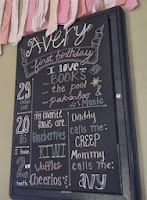 Avery
first birthday
I love...
BOOKS
the pool
pukaboo
Music
29
20
my favorite
foods are:
Blueberries
KIWI
Waffles
Cheerios
Daddy
calls me:
CREEP
Mommy
calls me:
avy